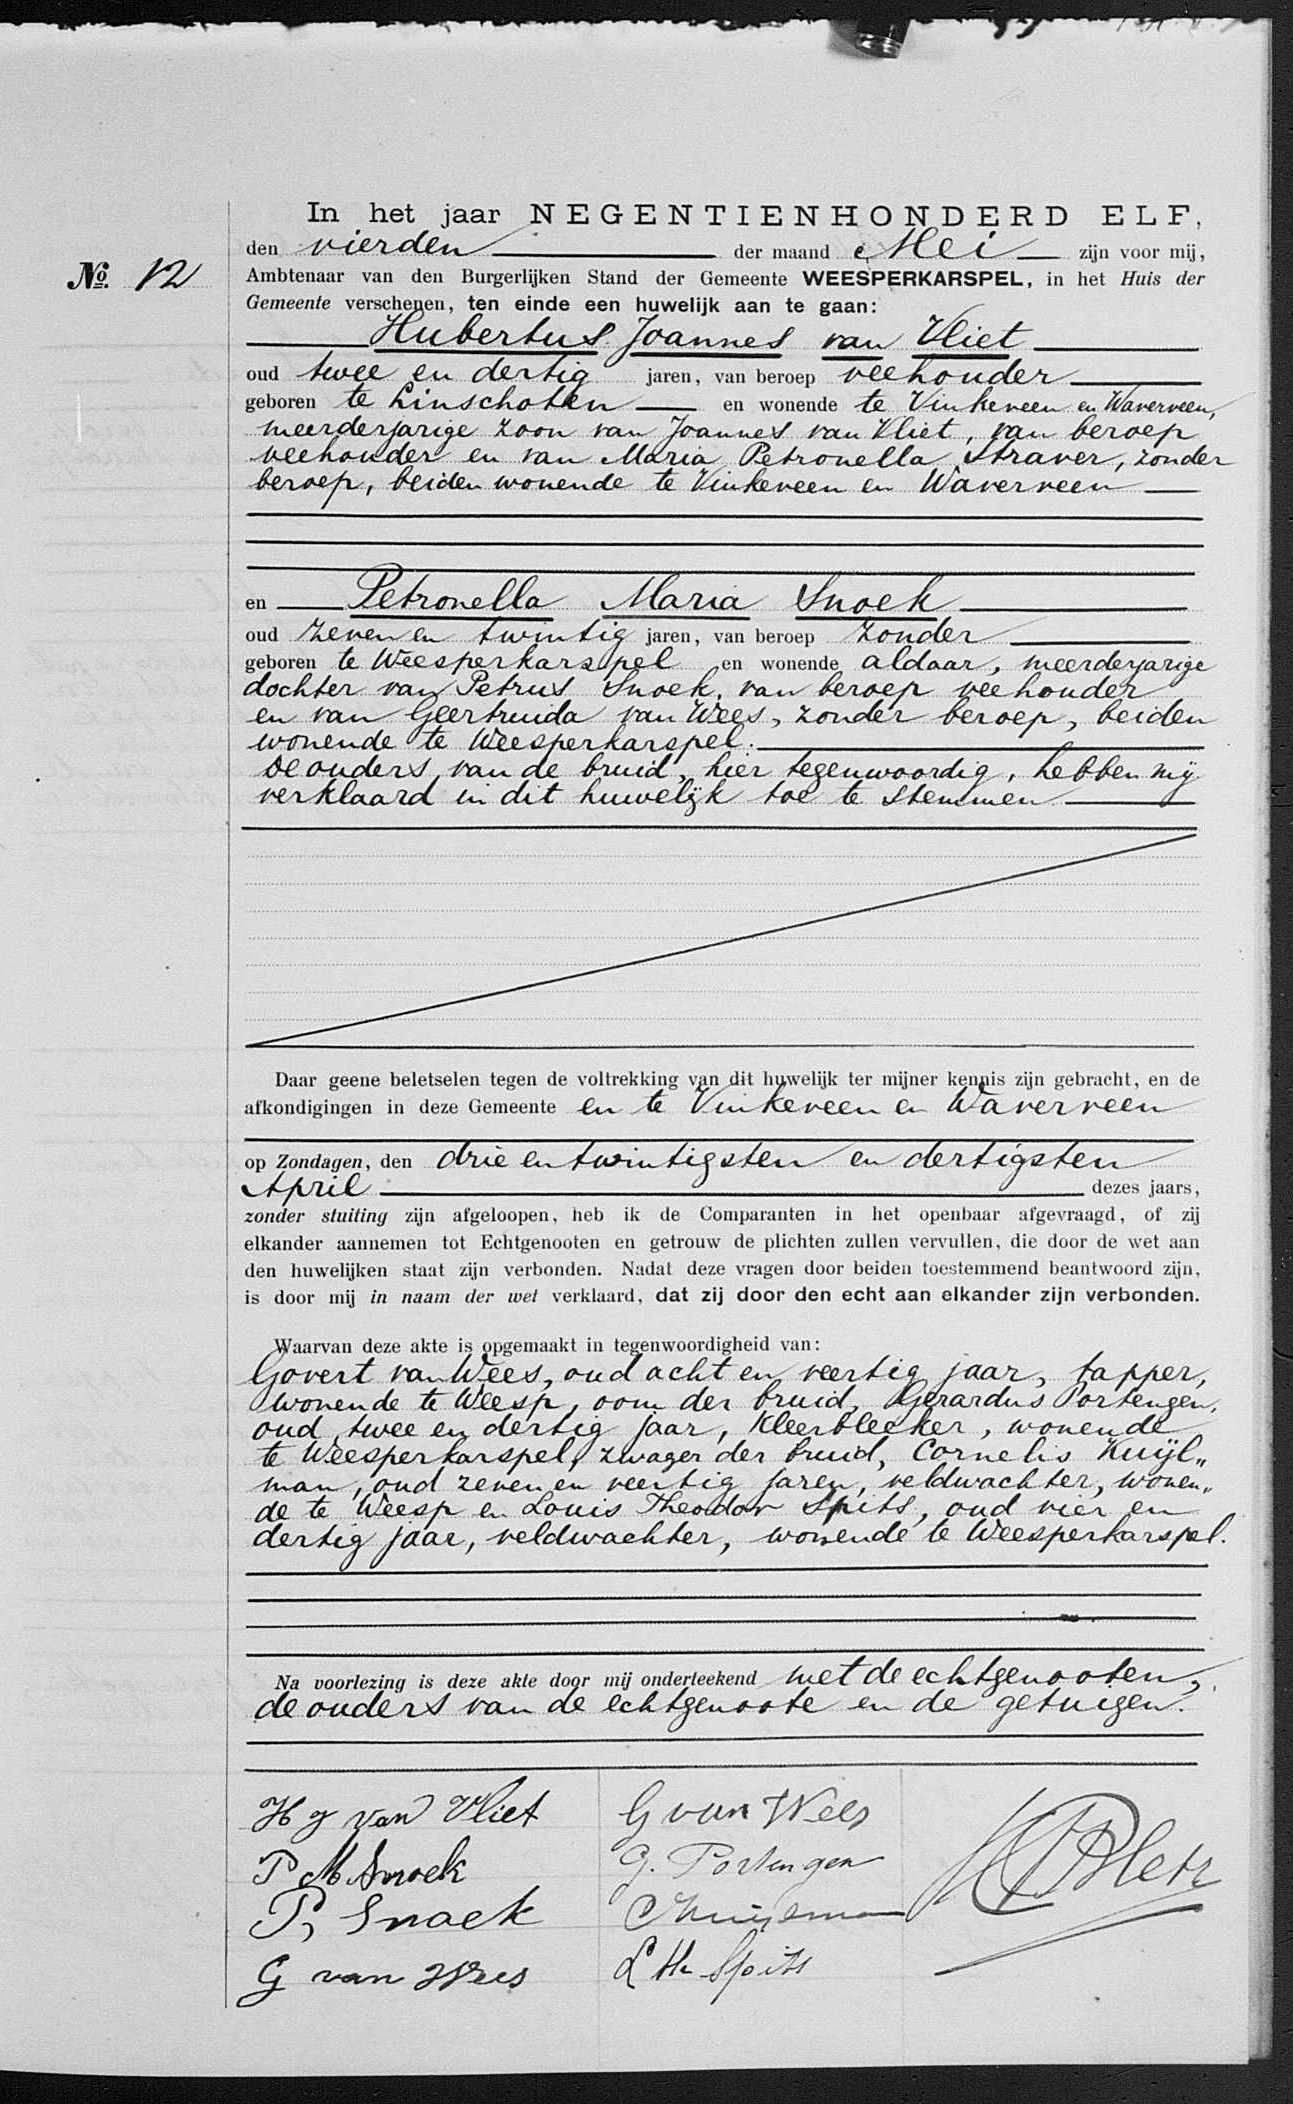 In het jaar NEGENTIENHONDERD ELF,
den vierden der maand Mei zijn voor mij,
No. 12
Ambtenaar van den Burgerlijken Stand der Gemeente WEESPERKARSPEL, in het Huis der
Gemeente verschenen, ten einde een huwelijk aan te gaan:
Hubertus Joannes van Vliet
oud twee en dertig jaren, van beroep veehouder
geboren te Linschoten en wonende te Vinkeveen en Waverveen,
meerderjarige zoon van Joannes van Vliet, van beroep
veehouder en van Maria Petronella Straver, zonder
beroep, beiden wonende te Vinkeveen en Waverveen
en Petronella Maria Snoek
oud zeven en twintig jaren, van beroep zonder
geboren te Weesperkarspel en wonende aldaar, meerderjarige
dochter van Petrus Snoek, van beroep veehouder
en van Geertruida van Wees, zonder beroep, beiden
wonende te Weesperkarspel.
De ouders van de bruid, hier tegenwoordig, hebben mij
verklaard in dit huwelijk toe te stemmen
Daar geene beletselen tegen de voltrekking van dit huwelijk ter mijner kennis zijn gebracht, en de
afkondigingen in deze Gemeente en te Vinkeveen en Waverveen
op Zondagen, den drie en twintigsten en dertigsten
April dezes jaars,
zonder stuiting zijn afgeloopen, heb ik de Comparanten in het openbaar afgevraagd, of zij
elkander aannemen tot Echtgenooten en getrouw de plichten zullen vervullen, die door de wet aan
den huwelijken staat zijn verbonden. Nadat deze vragen door beiden toestemmend beantwoord zijn,
is door mij in naam der wet verklaard, dat zij door den echt aan elkander zijn verbonden.
Waarvan deze akte is opgemaakt in tegenwoordigheid van:
Govert van Wees, oud acht en veertig jaar, tapper,
wonende te Weesp, oom der bruid, Gerardus Portengen,
oud twee en dertig jaar, kleerbleeker, wonende
te Weesperkarspel, zwager der bruid, Cornelis Kuijl„
man, oud zeven en veertig jaren, veldwachter, wonen„
de te Weesp en Louis Theodor Spits, oud vier en
dertig jaar, veldwachter, wonende te Weesperkarspel.
Na voorlezing is deze akte door mij onderteekend met de echtgenooten,
de ouders van de echtgenoote en de getuigen.
H J van Vliet
P M Snoek
P, Snoek
G van Wees
G van Wees
G. Portengen
L Th Spits